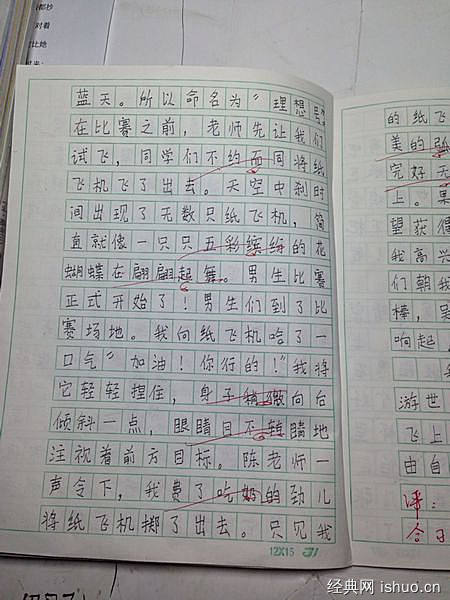 蓝天。所以命名为“理想号
在比赛之前，老师先让我们
试飞，同学们不约而同将纸
飞机飞了出去。天空中刹时
间出现了无数只纸飞机，简
直就像一只只五彩缤纷的花
蝴蝶在翩翩起舞。男生比赛
正式开始了！男生们到了比
赛场地。我向纸飞机哈了一
口气“加油！你行的！”我将
它轻轻捏住，身子稍微向后
倾斜一点，眼睛目不转睛地
注视着前方目标。陈老师一
声令下，我费了吃奶的劲儿
将纸飞机掷了出去。只见我
12X15 31
的纸飞
美的
完好无
上。果
望获得
我高兴
们朝我
棒，吴
响起，
我
游世
飞上
由自
评：
今日
都抄
对着
比她
经典网 ishuo.cn